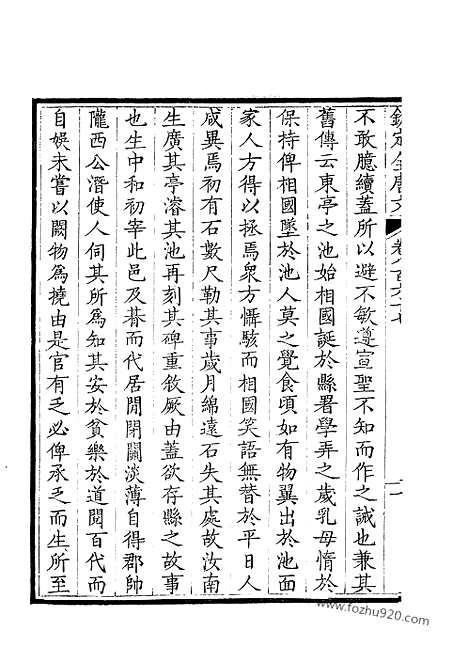 欽定全唐文 卷八百六十七 十一
不敢臆續蓋所以避不敏遵宣聖不知而作之誡也兼其
舊傳云東亭之池始相國誕於縣署學弄之歲乳母惰於
保持俾相國墜於池人莫之覺食頃如有物翼出於池面
家人方得以拯焉衆方懾駭而相國笑語無替於平日人
咸異焉初有石數尺勒其事歲月綿遠石失其處故汝南
生廣其亭濬其池再刻其碑重敘厥由蓋欲存縣之故事
也生中和初宰此邑及朞而代居閒閉關淡薄自得郡帥
隴西公潛使人伺其所爲知其安於貧樂於道閱百代而
自娛未嘗以闕物爲撓由是官有乏必俾承乏而生所至
www.fozhu920.com